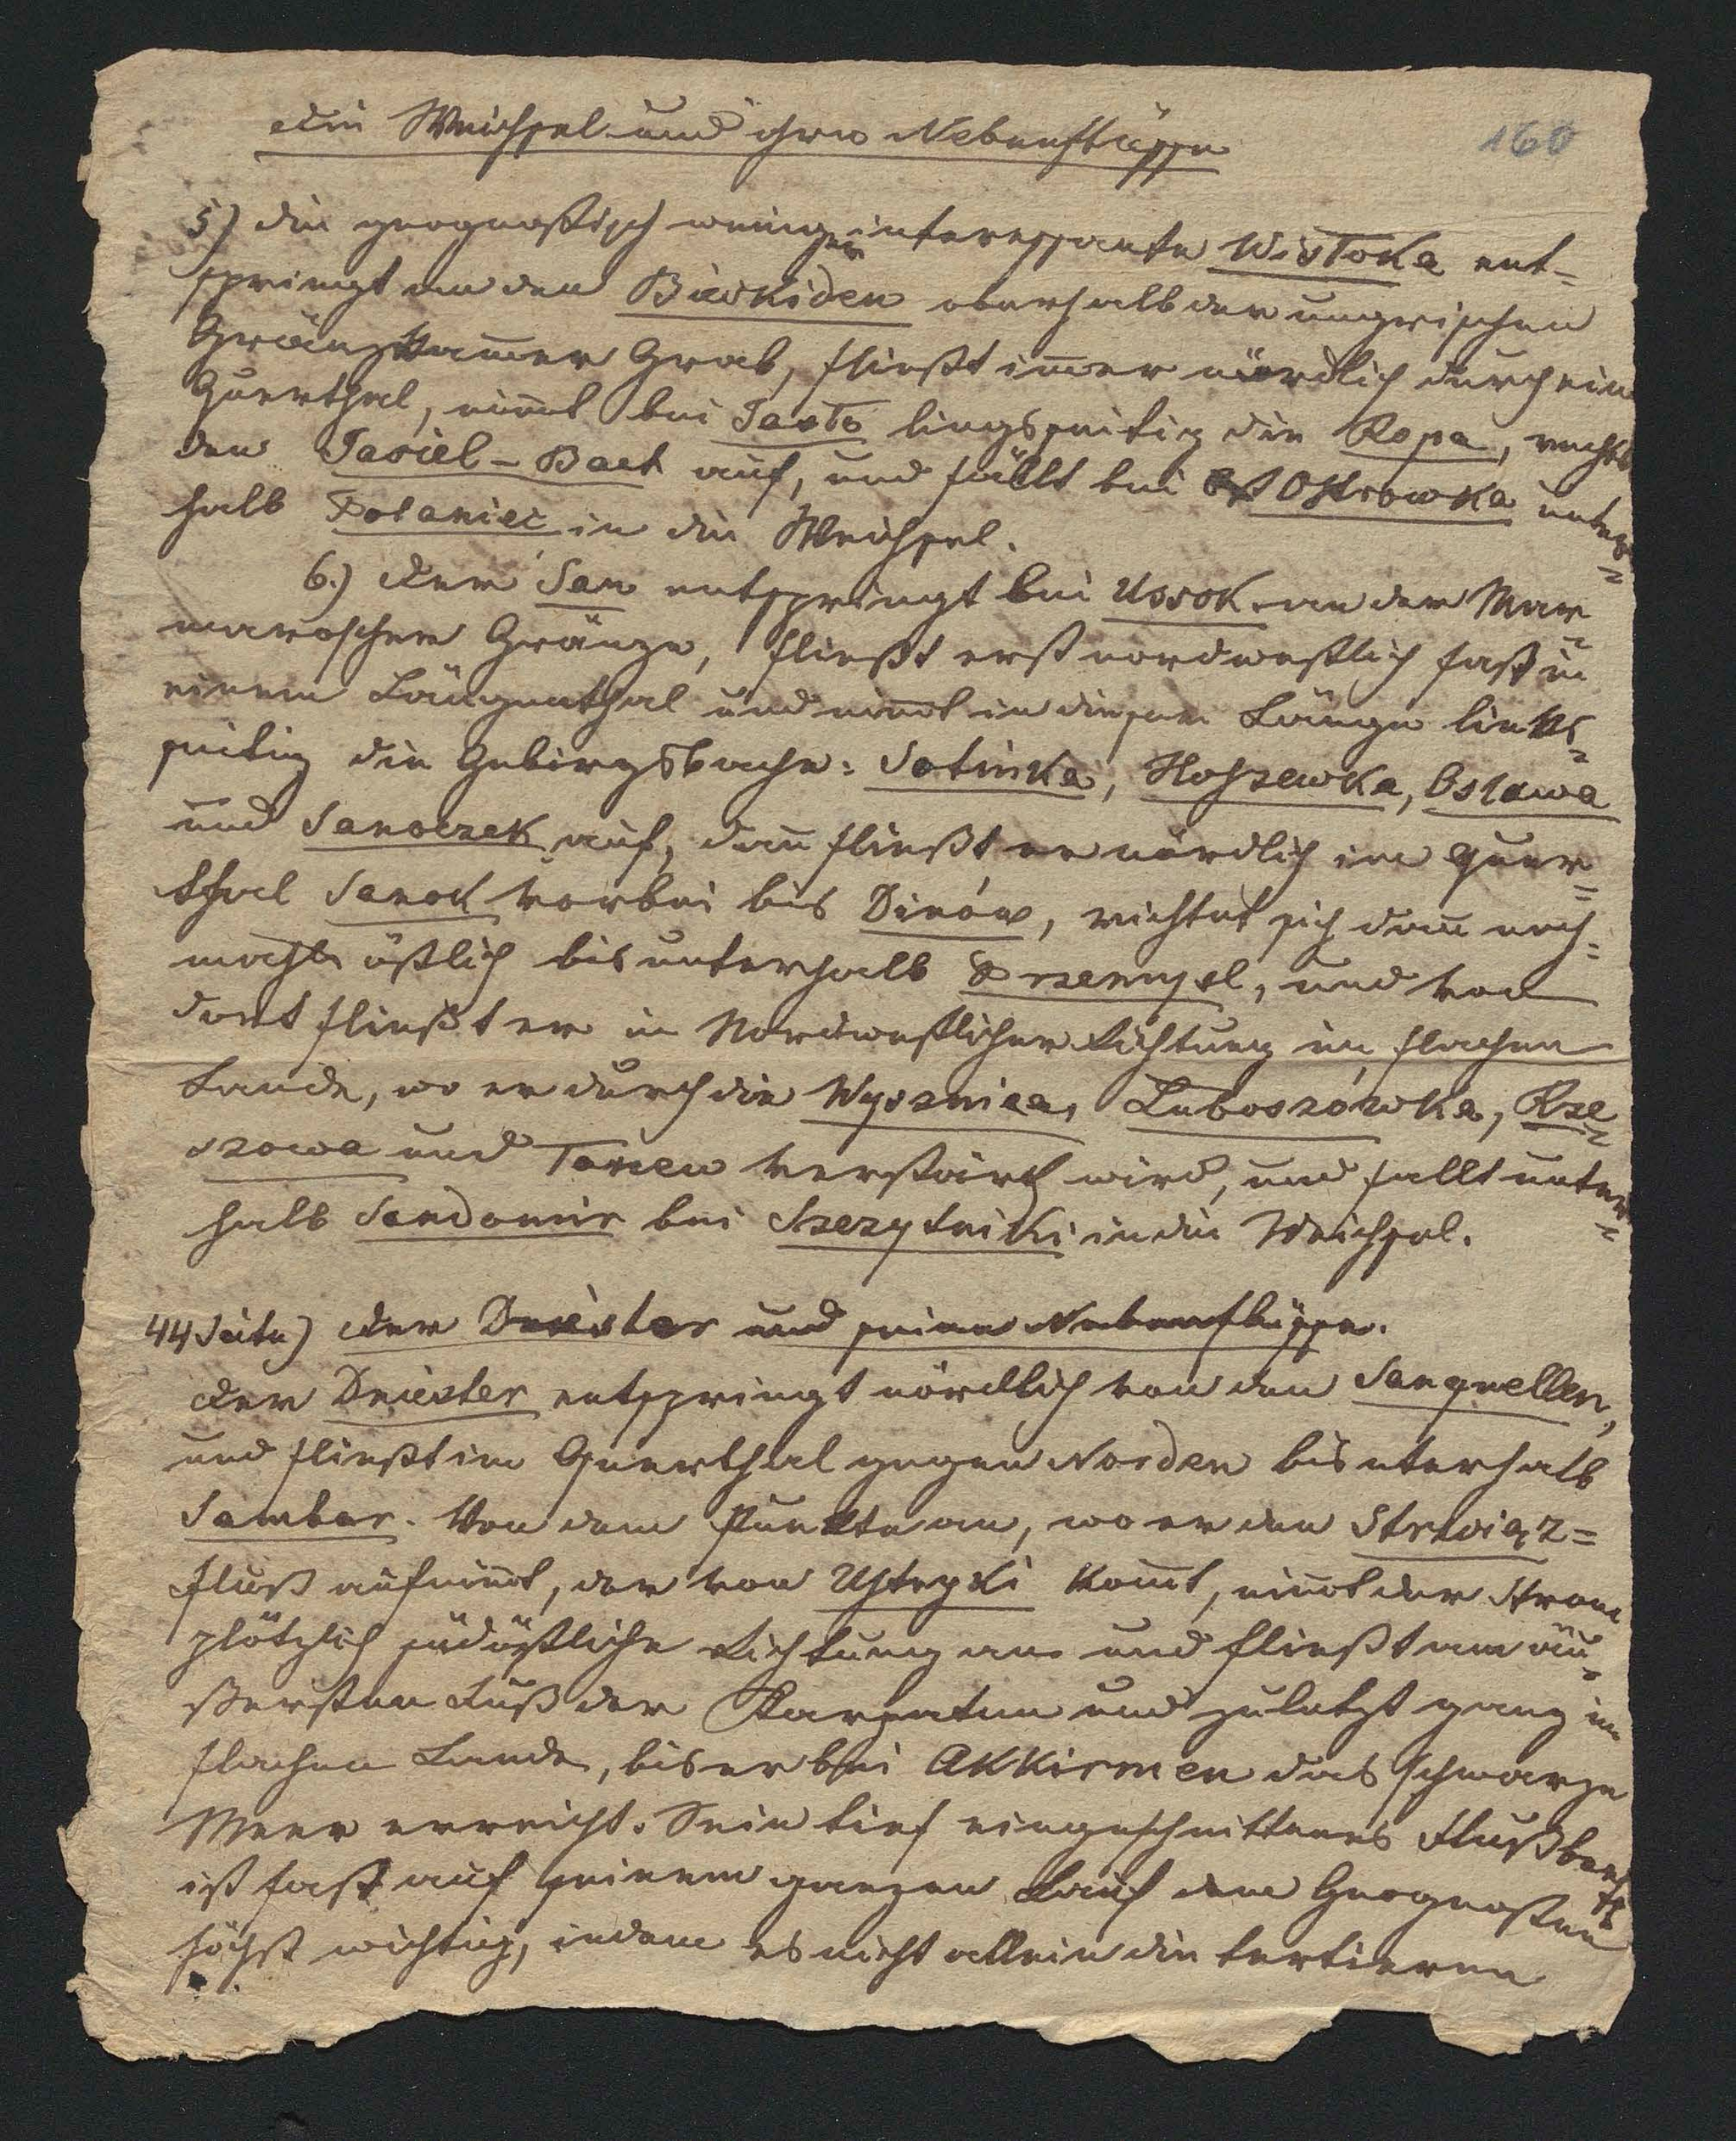 Die Weichsel und ihre Nebenflüsse
160
5) die geognostisch weniger interessante Wisłoka ent-
springt an den Bieskiden oberhalb der ungrischen
Gränzkam̅er Grab, fließt im̅er nördlich durch ein
Querthal, nim̅t bei Jasło lingsseitig die Ropa, rechts
den Jasiel-Bach auf, und fällt bei Ostrowka unter-
halb Połaniec in die Weichsel.
6.) Der San entspringt bei Ussok an der Mar-
maroscher Gränze, fließt erst nordwestlich fast in
einem Längenthal und nim̅t in dieser Länge links-
seitig die Gebirgsbache: Sotinka, Hoszewka, Osława
und Sanoczek auf, dan̅ fließt er nördlich im Quer-
thal Sanok vorbei bis Dinów, richtet sich dan̅ noch-
mahls östlich bis unterhalb Przemysl, und von
dort fließt er in Nordwestlicher Richtung im flachen
Lande, wo er durch die Wysznica, Luboszówka, Rze-
szowa und Tanew verstärkt wird, und fallt unter-
halb Sandomir bei Szczytniki in die Weichsel.
44 Seite) Der Dniester und seine Nebenflüsse.
Der Dniester entspringt nördlich von den Sanquellen,
und fließt im Querthal gegen Norden bis uterhalb
Sambor. Von dem Punkte an, wo er den Strwiąz=
fluß aufnim̅t, der von Ustrzyki kom̅t, nim̅t der Strom
plötzlich südöstliche Richtung an und fließt am äu-
ßersten Fuß der Karpaten und zuletzt ganz im
flachen Lande, bis er bei Akkirmen das schwarze
Meer erreicht. Sein tief eingeschnittenes Flußbett
ist fast auf seinem ganzen Lauf dem Geognosten
höchst wichtig, indem es nicht allein die tertieren